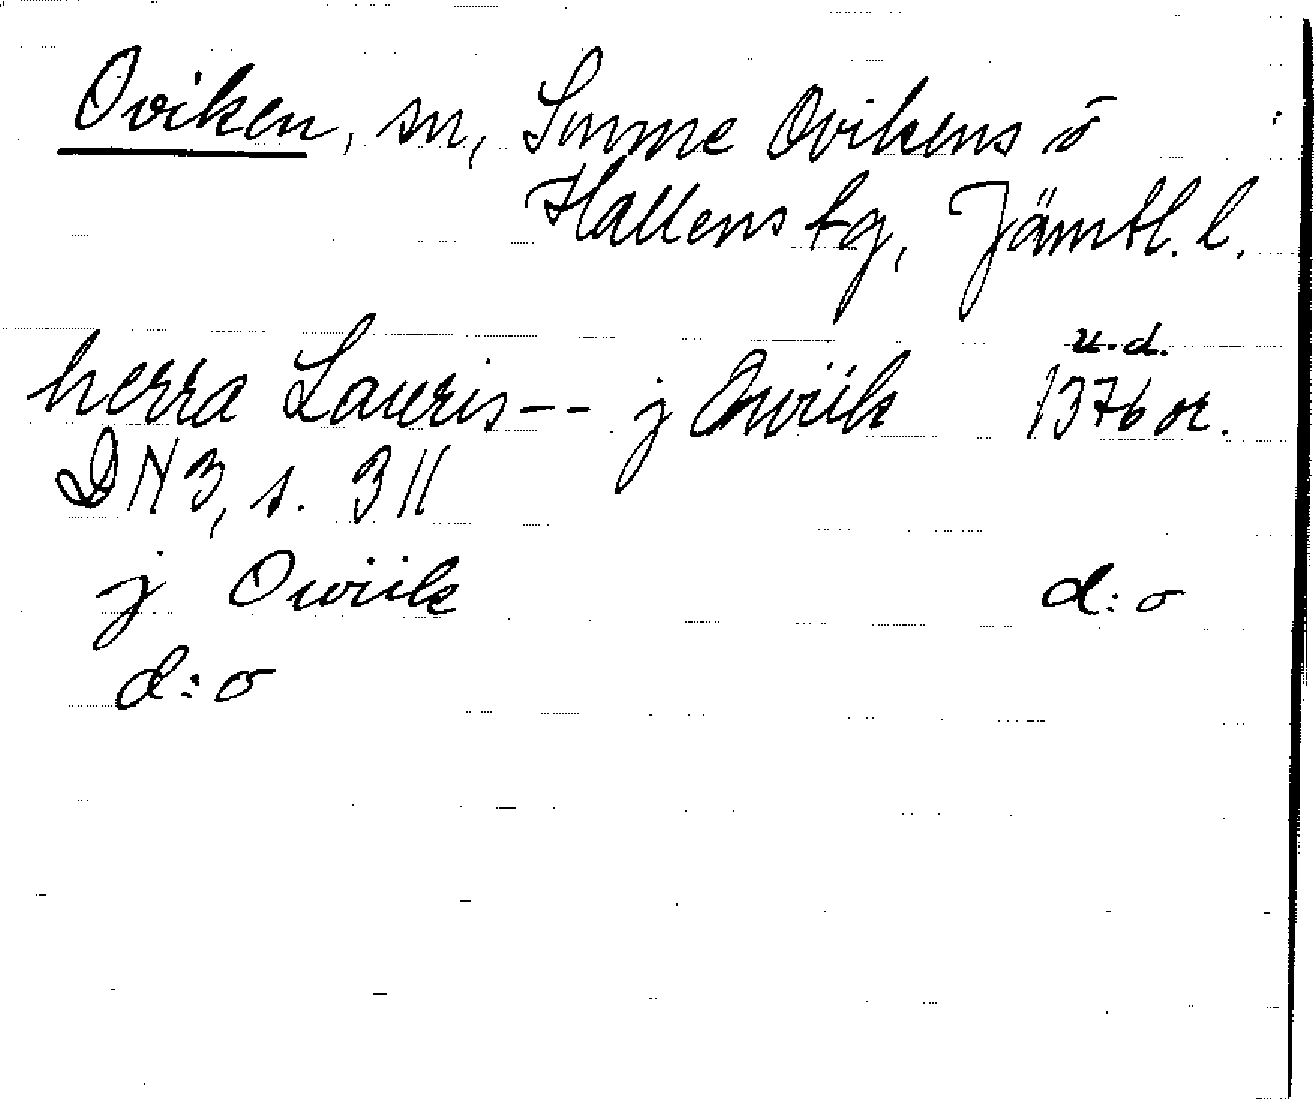 Oviken, sn, Sunne Ovikens o
Hallens tg, Jämtl. l.
u.d.
herra Lauris -- j Owiik 1376 or.
DN 3, s. 311
j Owiik d:o
d:o